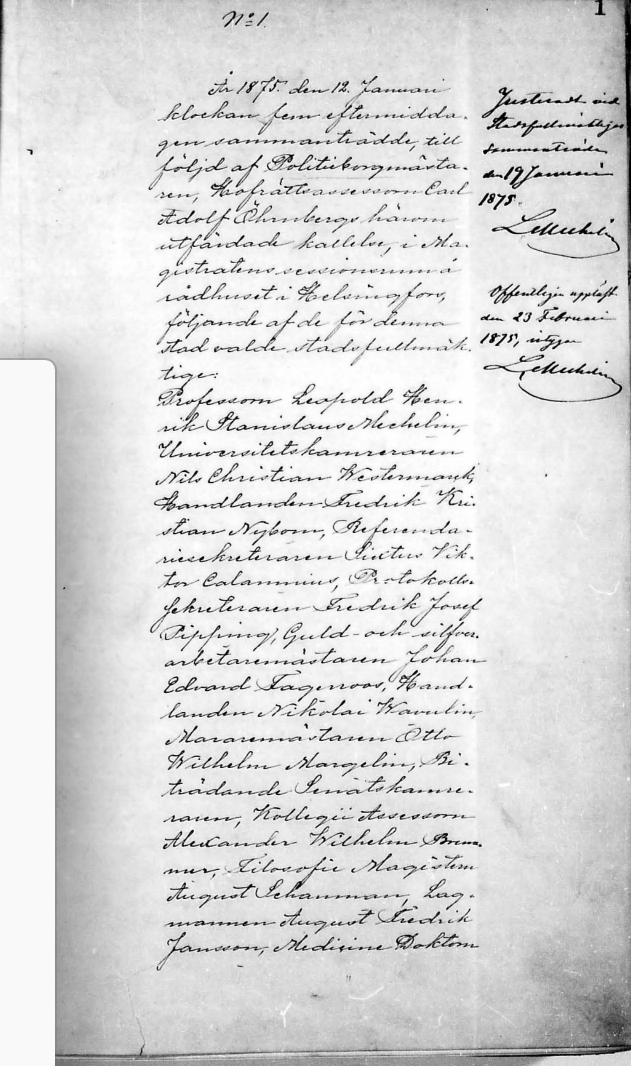 1
No 1.
År 1875. den 12. Januari
klockan fem eftermidda-
gen sammanträdde, till
följd af Politieborgmästa-
ren, Hofrättsassessorn Carl
Adolf Öhrnbergs härom
utfärdade kallelse, i Ma-
gistratens sessionsrum å
rådhuset i Helsingfors,
följande af de för denna
stad valde stadsfullmäk-
tige:
Professorn Leopold Hen-
rik Stanislaus Mechelin,
Universitetskamreraren
Nils Christian Westermarck,
Handlanden Fredrik Kri-
stian Nybom, Referenda-
riesekreteraren Sixtus Vik-
tor Calamnius, Protokolls-
sekreteraren Fredrik Josef
Pipping, Guld- och silfver-
arbetaremästaren Johan
Edvard Fagerroos, Hand-
landen Nikolai Wavulin,
Muraremästaren Otto
Wilhelm Margelin, Bi-
trädande Senatskamre-
raren, Kollegii Assessorn
Alexander Wilhelm Brum-
mer, Filosofie Magistern
August Schauman, Lag-
mannen August Fredrik
Jansson, Medicine Doktorn
Justeradt vid
Stadsfullmäktiges
sammanträde
den 19 Januari
1875.
L Mechelin
Offentligen uppläst
den 23 Februari
1875, intygar
L Mechelin